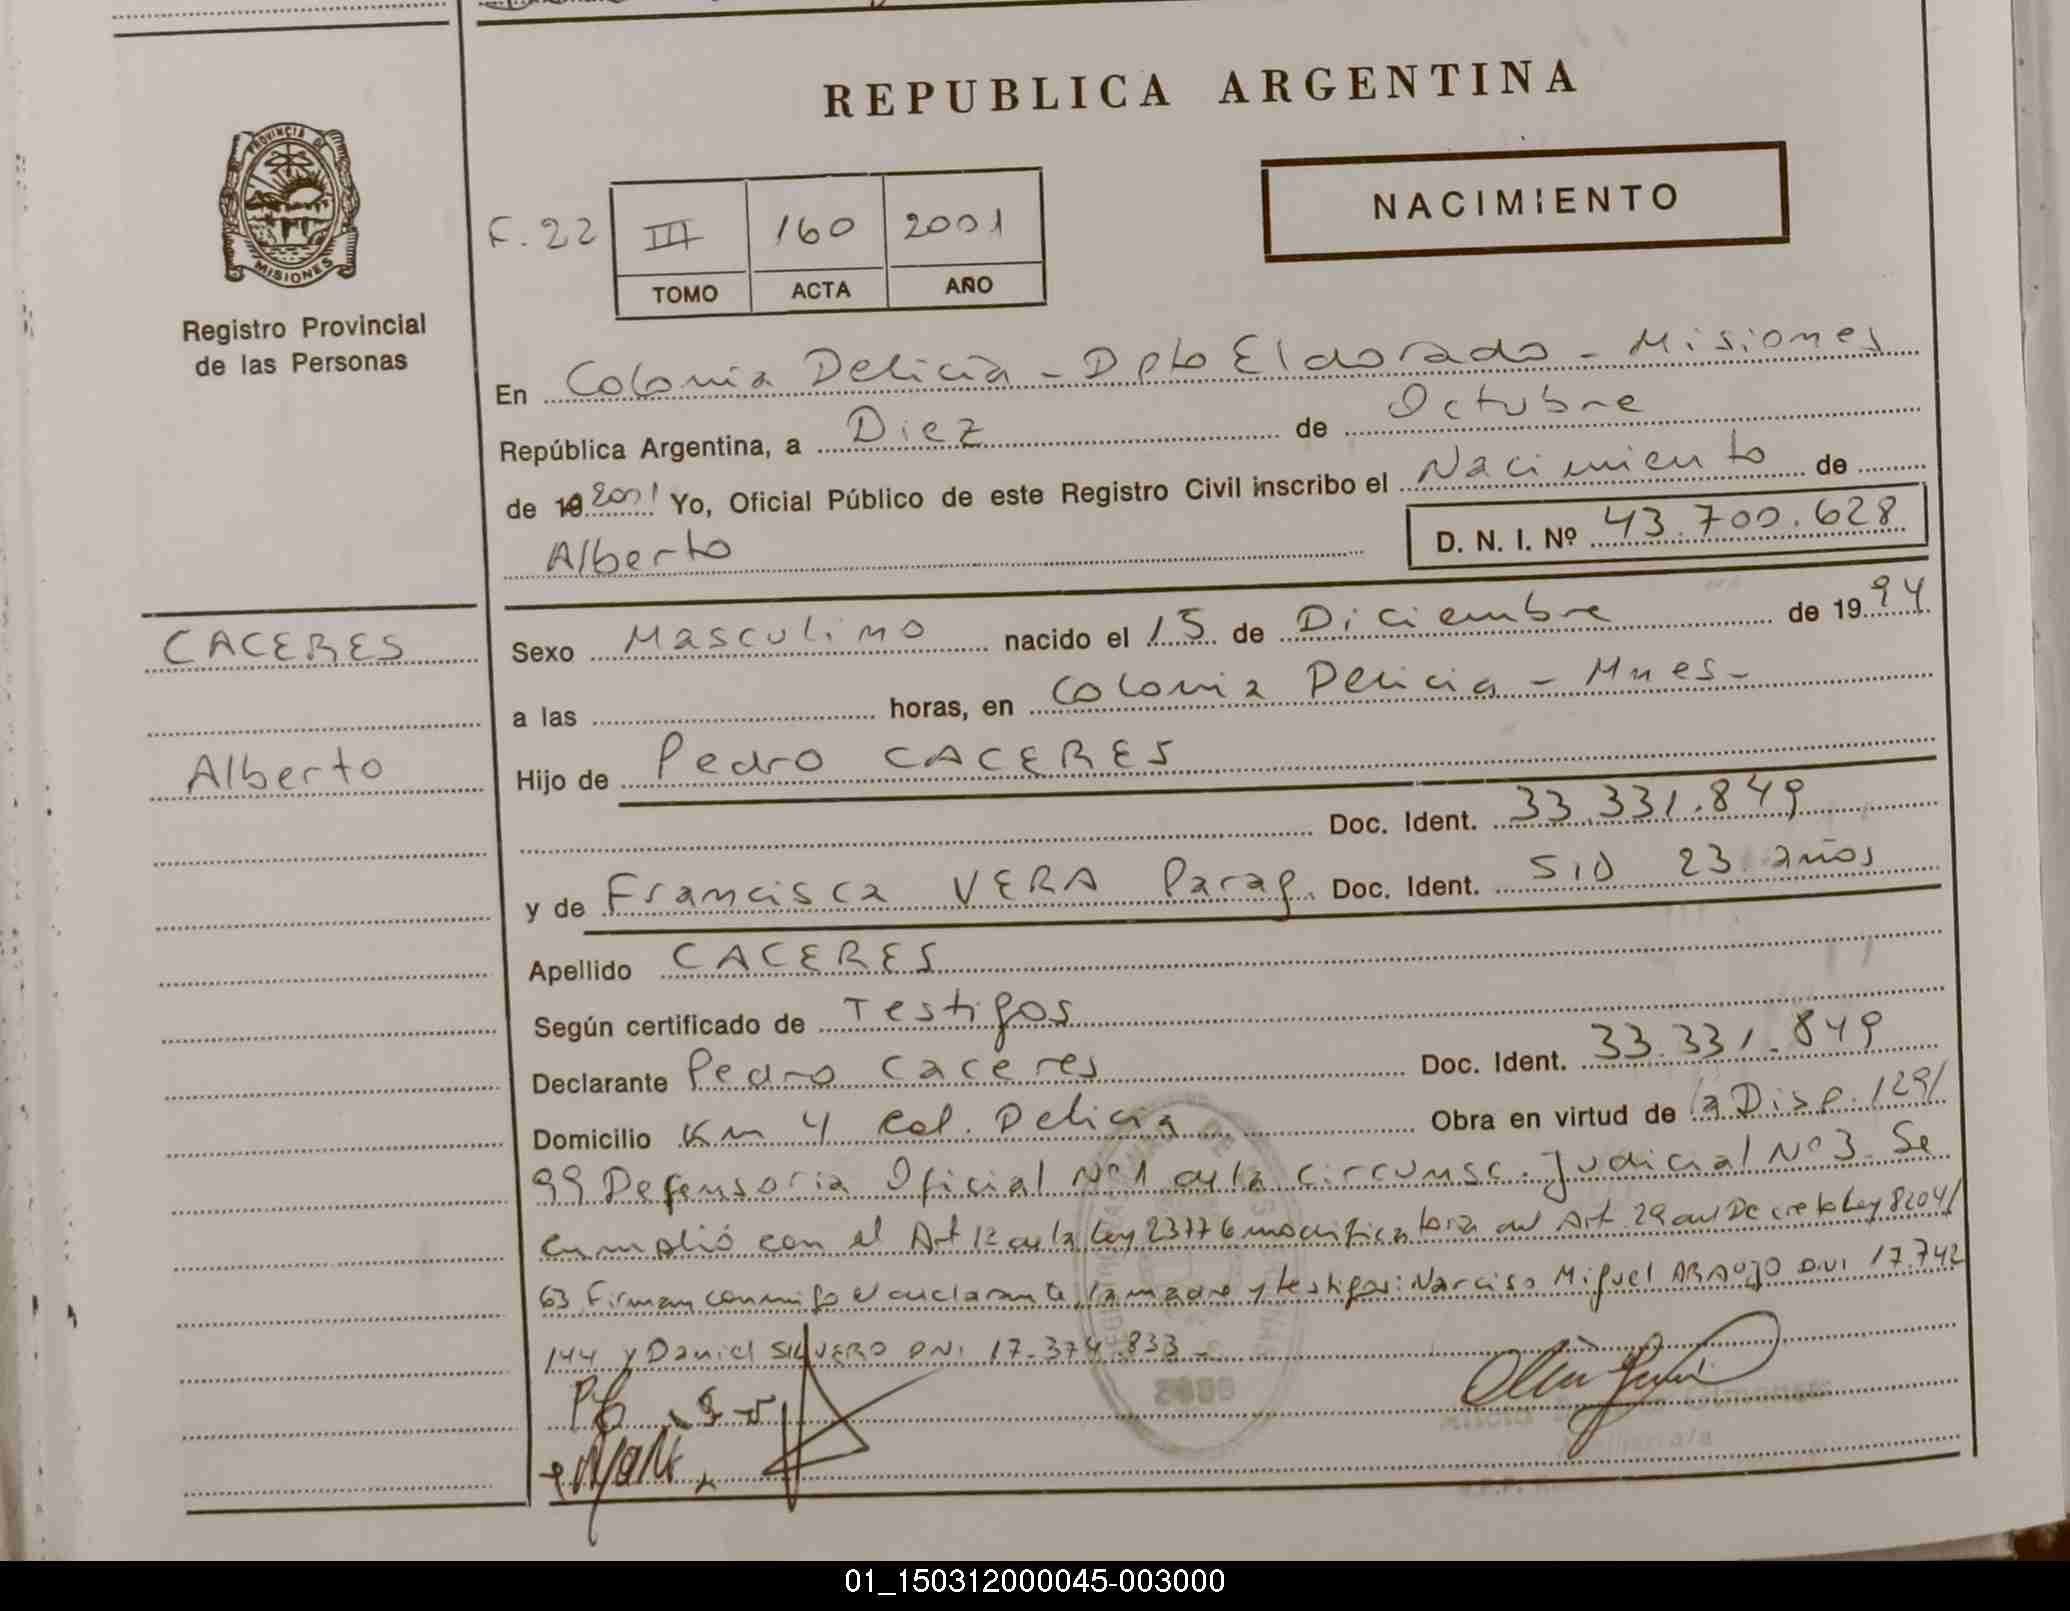 REPUBLICA ARGENTINA
PROVINCIA DE
MISIONES
Registro Provincial
de las Personas
NACIMIENTO
F. 22 III 160 2001
TOMO ACTA AÑO
En Colonia Delicia - Dpto Eldorado - Misiones
República Argentina, a Diez de Octubre
de 19 2001 Yo, Oficial Público de este Registro Civil inscribo el Nacimiento de
Alberto D. N. I. Nº 43.700.628
CACERES
Alberto
Sexo Masculino nacido el 15 de Diciembre de 1994
a las horas, en Colonia Delicia - Mnes -
Hijo de Pedro CACERES
Doc. Ident. 33.331.849
y de Francisca VERA Parag. Doc. Ident. S/D 23 años
Apellido CACERES
Según certificado de Testigos
Declarante Pedro Caceres Doc. Ident. 33.331.849
Domicilio Km 4 Col. Delicia Obra en virtud de la Disp. 129/
99 Defensoria Oficial Nº 1 de la Circunsc. Judicial Nº 3. Se
cumplió con el Art 12 de la Ley 23776 modificatoria del Art 29 del Decreto Ley 8204/
63 Firman conmigo el declarante, la madre y testigos: Narciso Miguel ARAUJO DNI 17.742
144 y Daniel SILVERO DNI 17.374.833 -
01_150312000045-003000